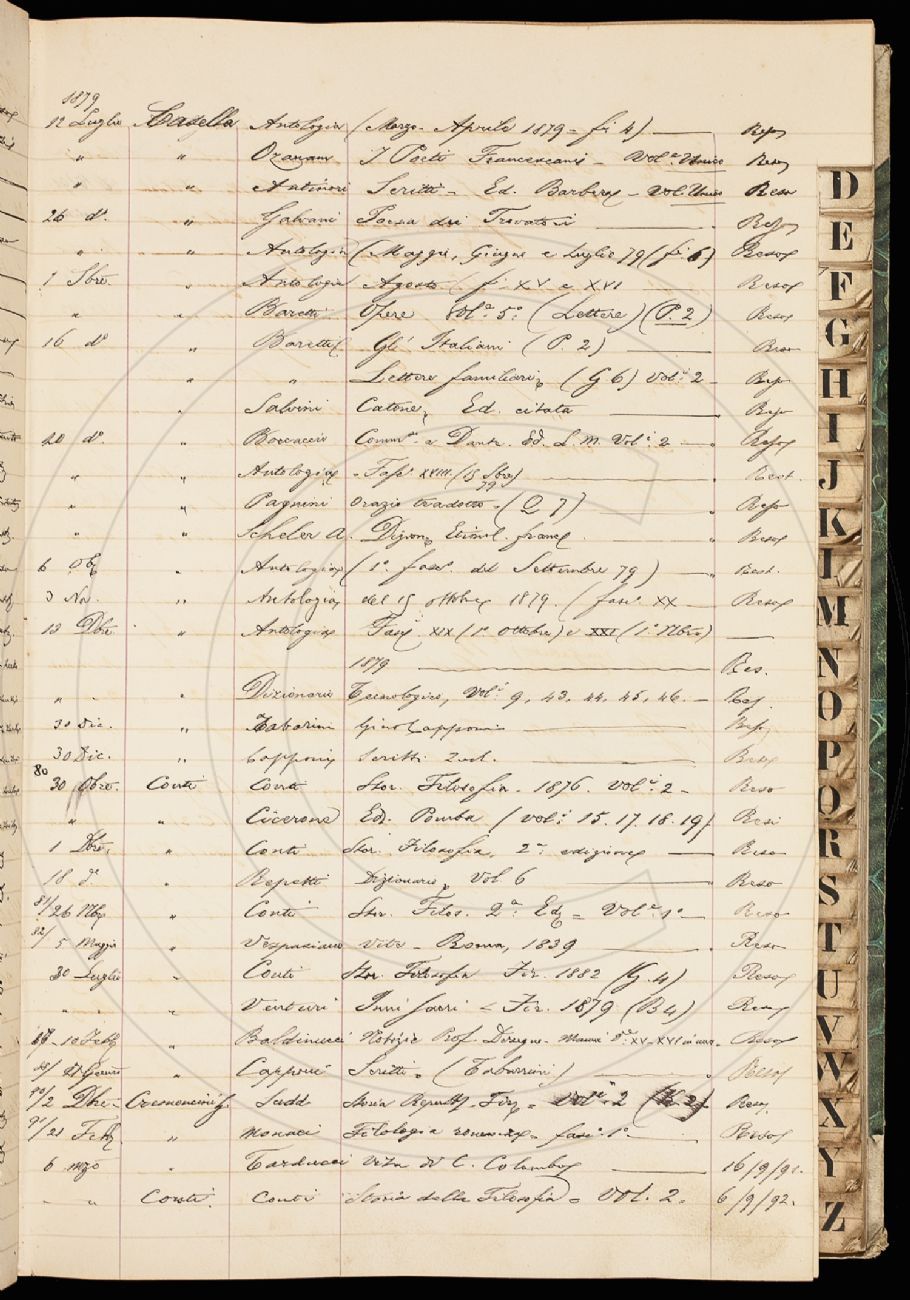 1879
12 Luglio Casella Antologia (Marzo - Aprile 1879 - fi 4) Reso
" " Ozanam I Poeti Francescani - Vol.e Unico Reso
" " Antinori Scritti - Ed. Barbera - Vol. Unico Reso
26 do. " Galvani Poesia dei Trovatori Reso
" " Antologia (Maggio, Giugno e Luglio 79 (fi 6) Reso
1 Sbre. " Antologia Agosto (fi XV e XVI Reso
" " Baretti Opere Vol.e 5o (Lettere) (P. 2) Reso
16 do " Baretti Gl' Italiani (P. 2) Reso
" " Lettere familiari, (G 6) Vol.i 2 - Reso
" Salvini Catone, Ed. citata Reso
20 do. " Boccaccio Comm.o a Dante. Ed. L. M. Vol.i 2 Reso
" " Antologia Fas. XVIII (15 Sbre 79) Rest.
" " Pagnini Orazio tradotto - (Q 7) Reso
" " Scheler A. Dizion. Etimol. franc. Reso
6 " Antologia (1o fasc. del Settembre 79) Rest.
3 Nov. " Antologia del 15 ottobre 1879. (fasc. XX Reso
13 Dbre " Antologia Fasc. XIX (1o Ottobre) e XXI (1o Nbre)
1879 Res.
" " Dizionario Tecnologico, Vol.i 9, 43, 44, 45, 46. - Res.
30 Dic. " Tabarrini Gino Capponi Reso
30 Dic. " Capponi Scritti 2 vol. Reso
80
30 Obre. Conti Conti Stor. Filosofia - 1876. Vol.i 2 - Reso
" " Cicerone Ed. Pomba (vol.i 15. 17. 18. 19) Resi
1 Dbre. " Conti Stor. Filosofia, 2a edizione Reso
18 do " Repetti Dizionario, Vol 6 Reso
81/26 Nbre " Conti Stor. Filos. 2a Ed. - Vol.e 1o Reso
82/
5 Maggio " Vespasiano Vite - Roma, 1839 Reso
30 Luglio " Conti Stor. Filosofia Fir. 1882 (G. 4) Reso
" " Venturi Inni sacri - Fir. 1879 (B 4) Reso
10 Febb. " Baldinucci Notizie Prof. Disegno - Reso
" Capponi Scritti - (Tabarrini) Reso
2 Dbre - Cremoncini G. Storia - Fir. - Vol.i 2 Reso
91/21 Febb. " Monaci Filologia romanza - fasc. 1o Reso
6 mzo " Tarducci Vita di C. Colombo 16/9/91.
" " Conti Conti Storia della Filosofia - Vol. 2. 6/9/92.
D
E
F
G
H
I
J
K
L
M
N
O
P
Q
R
S
T
U
V
W
X
Y
Z